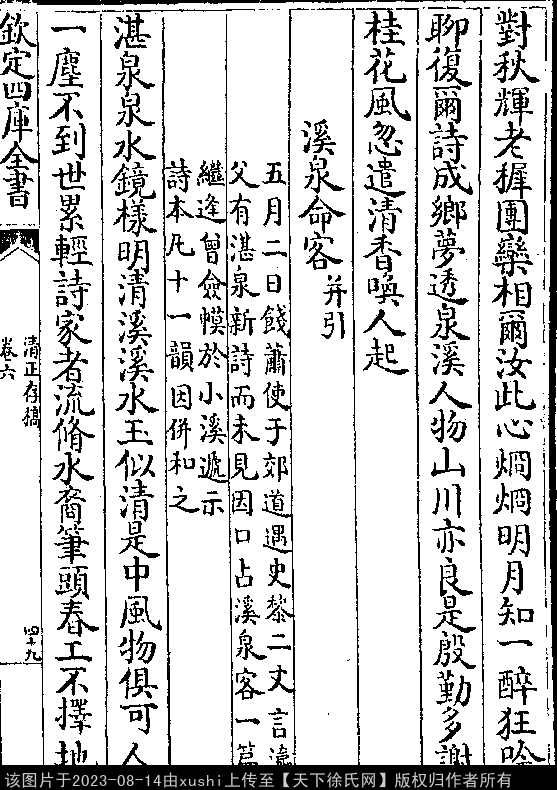 對秋輝老握團欒相爾汝此心烱烱明月知一醉狂吟
聊復爾詩成鄉夢透泉溪人物山川亦良是殷勤多謝
桂花風忽遣清香喚人起
溪泉命客并引
五月二日餞蕭使于郊道遇史黎二丈言
父有湛泉新詩而未見因口占溪泉客一篇
繼逢曾僉幙於小溪遞示
詩本凡十一韻因併和之
湛泉泉水鏡樣明清溪溪水玉似清是中風物俱可人
一塵不到世累輕詩家者流脩水裔筆頭春工不擇地
欽定四庫全書
清正存稿
卷六
四十九
该图片于2023-08-14由xushi上传至【天下徐氏网】版权归作者所有